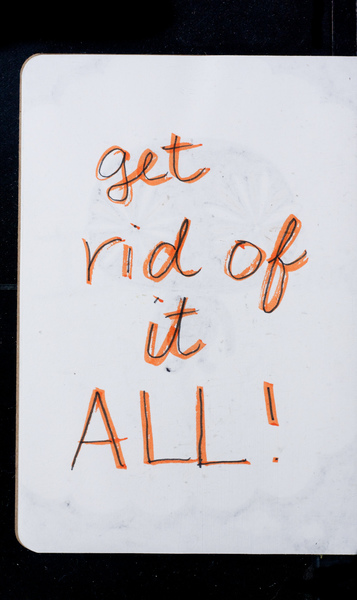 get
rid of
it
ALL!